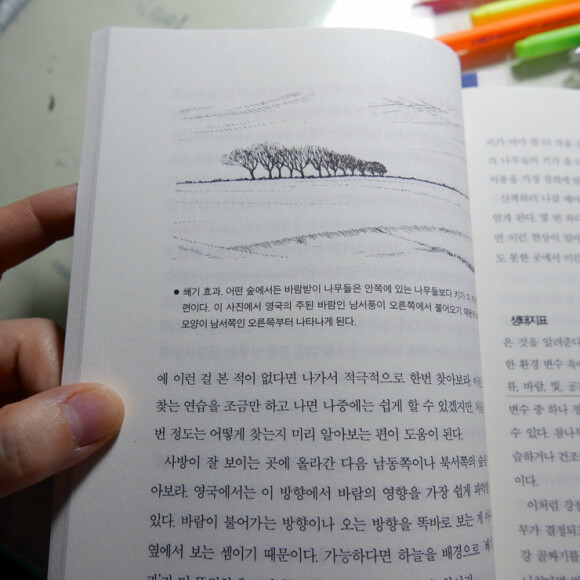 ● 쐐기 효과. 어떤 숲에서든 바람받이 나무들은 안쪽에 있는 나무들보다 키가 더
련이다. 이 사진에서 영국의 주된 바람인 남서풍이 오른쪽에서 불어오기 때문에
모양이 남서쪽인 오른쪽부터 나타나게 된다.
에 이런 걸 본 적이 없다면 나가서 적극적으로 한번 찾아보라.
찾는 연습을 조금만 하고 나면 나중에는 쉽게 할 수 있겠지만,
번 정도는 어떻게 찾는지 미리 알아보는 편이 도움이 된다.
사방이 잘 보이는 곳에 올라간 다음 남동쪽이나 북서쪽의 숲을
아보라. 영국에서는 이 방향에서 바람의 영향을 가장 쉽게
있다. 바람이 불어가는 방향이나 오는 방향을 똑바로 보는 게
옆에서 보는 셈이기 때문이다. 가능하다면 하늘을 배경으로
키가
의 나무들의 키가
서풍을 가장 강하게
산책하러 나갈 때
얻게 된다. 몇 번
면 이런 현상이
도 못한 곳에서 이런
생태지표
은 것을 알려준다
한 환경 변수 속
름, 바람, 빛,
변수 중 하나
수 있다. 참나
습하거나 건조
이다.
이처럼
무가 결정되
강 골짜기를